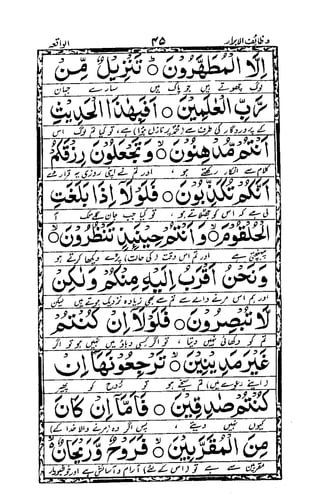 وظائف الابرار ۳۵ الواقعہ
اِلَّا الْمُطَهَّرُوْنَ ○ تَنْزِيْلٌ مِّنْ
لوگ چھوتے ہیں جو پاک ہیں سارے جہان
رَّبِّ الْعٰلَمِيْنَ ○ اَفَبِهٰذَا الْحَدِيْثِ
کے پروردگار کی طرف سے (محمدؐ پر نازل ہوا) ہے ، تو کیا تم لوگ اس
اَنْتُمْ مُّدْهِنُوْنَ ○ وَتَجْعَلُوْنَ رِزْقَكُمْ
کلام سے انکار رکھتے ہو ، اور تم نے اپنی روزی یہ قرار دے
اَنَّكُمْ تُكَذِّبُوْنَ ○ فَلَوْلَا اِذَا بَلَغَتِ
لی ہے کہ اس کو جھٹلاتے ہو ، تو کیا جب جان گلے تک آ
الْحُلْقُوْمَ ○ وَاَنْتُمْ حِيْنَئِذٍ تَنْظُرُوْنَ ○
پہنچتی ہے اور تم اس وقت (کی حالت) پڑے دیکھا کرتے ہو
وَنَحْنُ اَقْرَبُ اِلَيْهِ مِنْكُمْ وَلٰكِنْ
اور ہم اس مرنے والے سے تم سے بھی زیادہ نزدیک ہوتے ہیں لیکن
لَّا تُبْصِرُوْنَ ○ فَلَوْلَا اِنْ كُنْتُمْ
تم کو دکھائی نہیں دیتا ، تو اگر کسی کے دباؤ میں نہیں ہو تو اگر
غَيْرَ مَدِيْنِيْنَ ○ تَرْجِعُوْنَهَا اِنْ
(اپنے دعوے میں) تم سچے ہو تو روح کو پھیر
كُنْتُمْ صٰدِقِيْنَ ○ فَاَمَّا اِنْ كَانَ
کیوں نہیں دیتے ، پس اگر وہ (مرنے والا خدا کے)
مِنَ الْمُقَرَّبِيْنَ ○ فَرَوْحٌ وَّرَيْحَانٌ
مقربین سے ہے تو (اس کے لئے) آرام و آسائش ہے اور خوشبودار